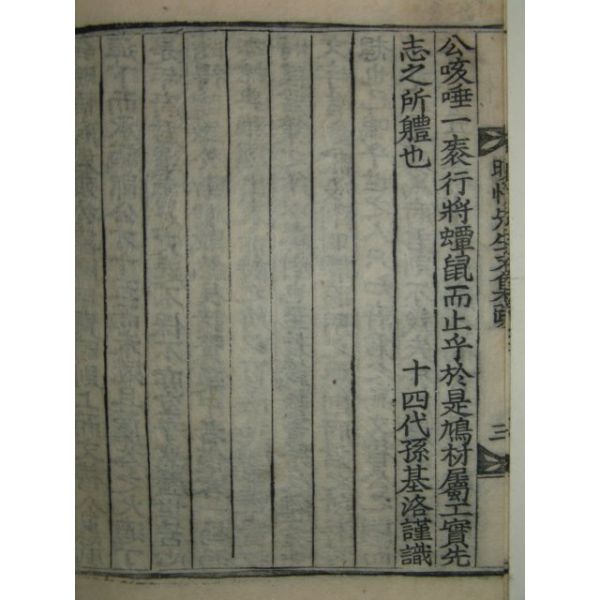 公咳唾一袠行將蟫鼠而止乎於是鳩材屬工實先
志之所軆也
十四代孫基洛謹識
先生文集
三